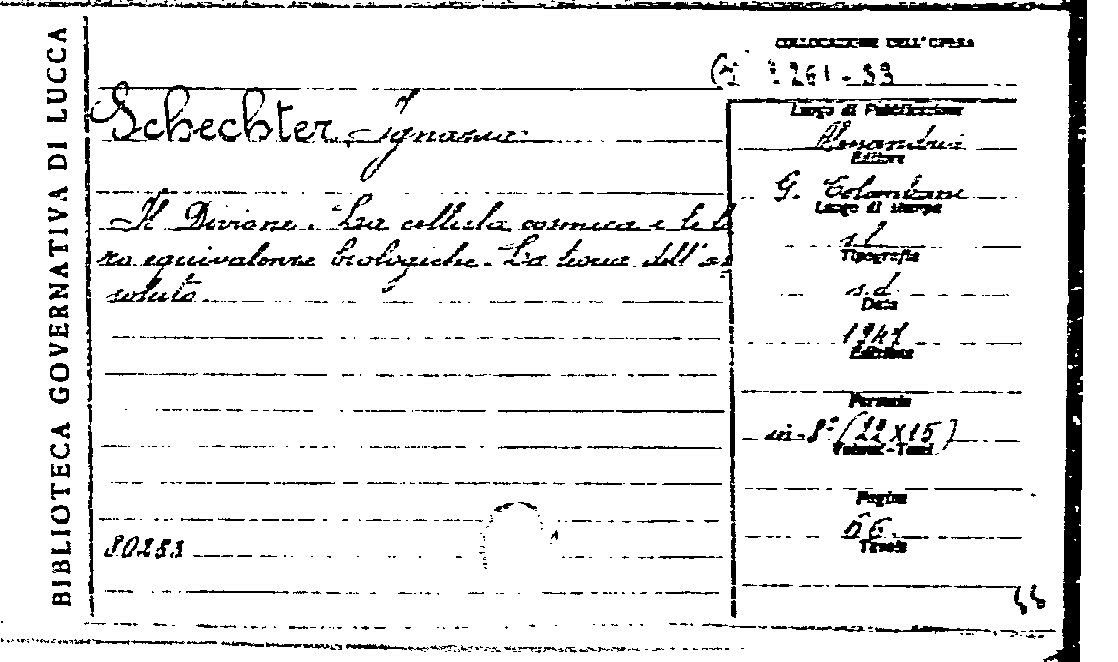 BIBLIOTECA GOVERNATIVA DI LUCCA
COLLOCAZIONE DELL'OPERA
261-33
Schechter Ignazio
Il Divione. La cellula cosmica e le lo
ro equivalenze biologiche. La teoria dell'as
soluto.
80253
Luogo di Pubblicazione
Alessandria
Editore
G. Colombani
Luogo di stampa
s.l.
Tipografia
s.d.
Data
1947
Edizione
Formato
in-8° (22x15)
Volumi-Tomi
Pagine
56
Tavole